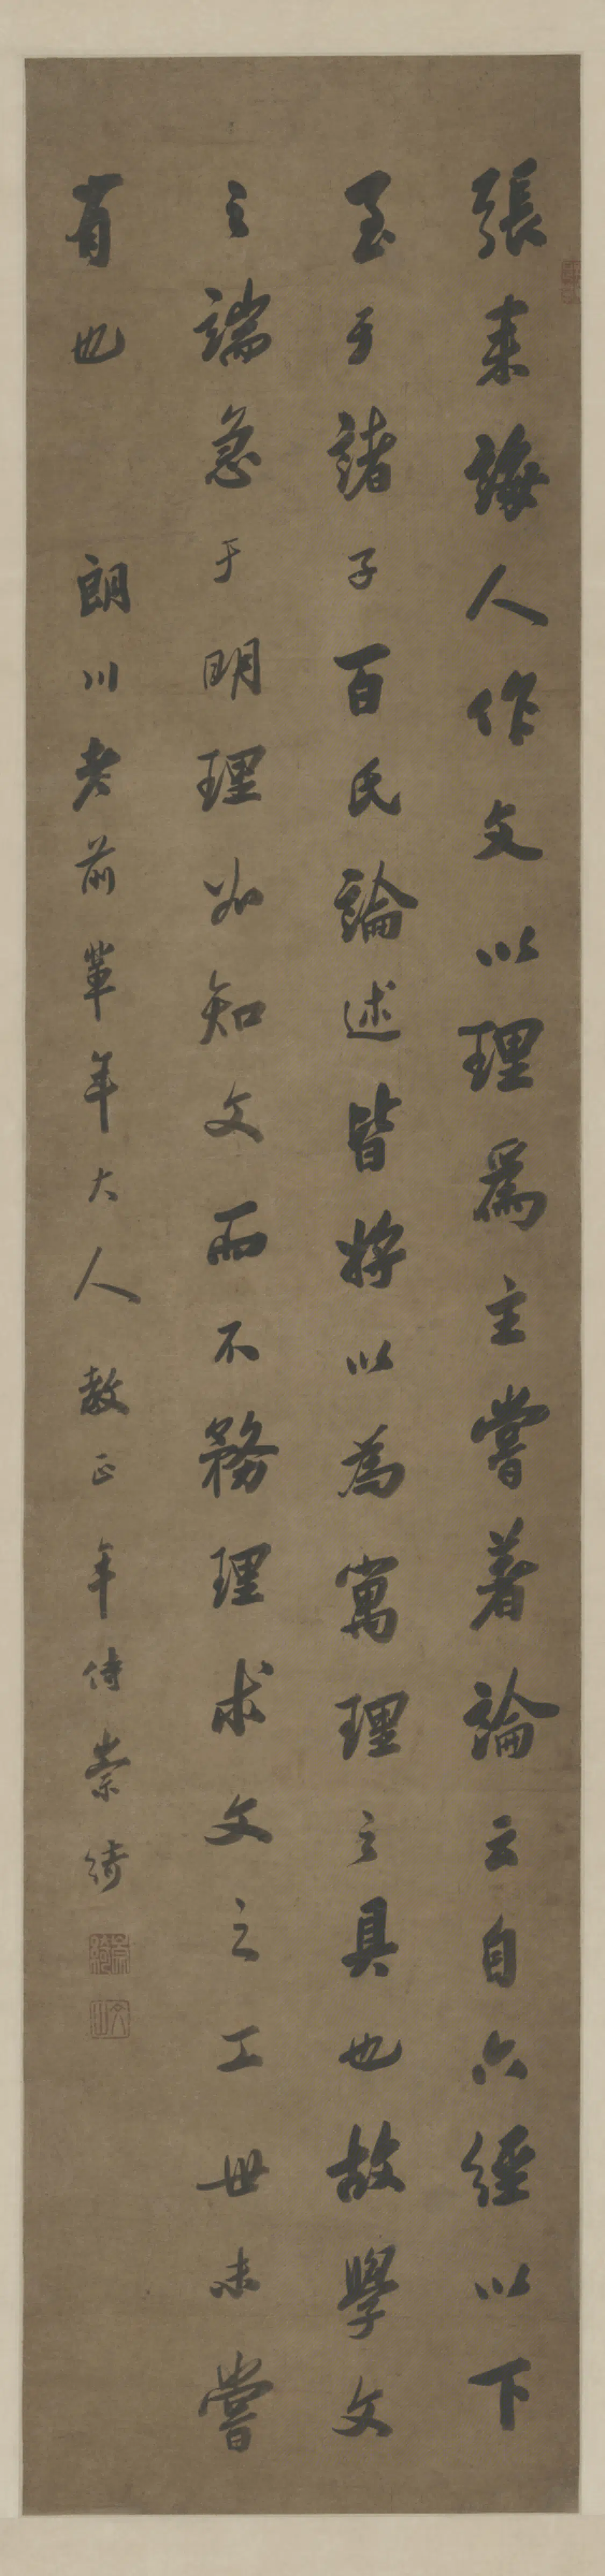 張耒誨人作文以理爲主嘗著論云自六經以下
至于諸子百氏論述皆將以為寓理之具也故學文
之端急于明理如知文而不務理求文之工世未嘗
有也
朗川老前輩年大人教正 年侍崇綺
崇綺
文山